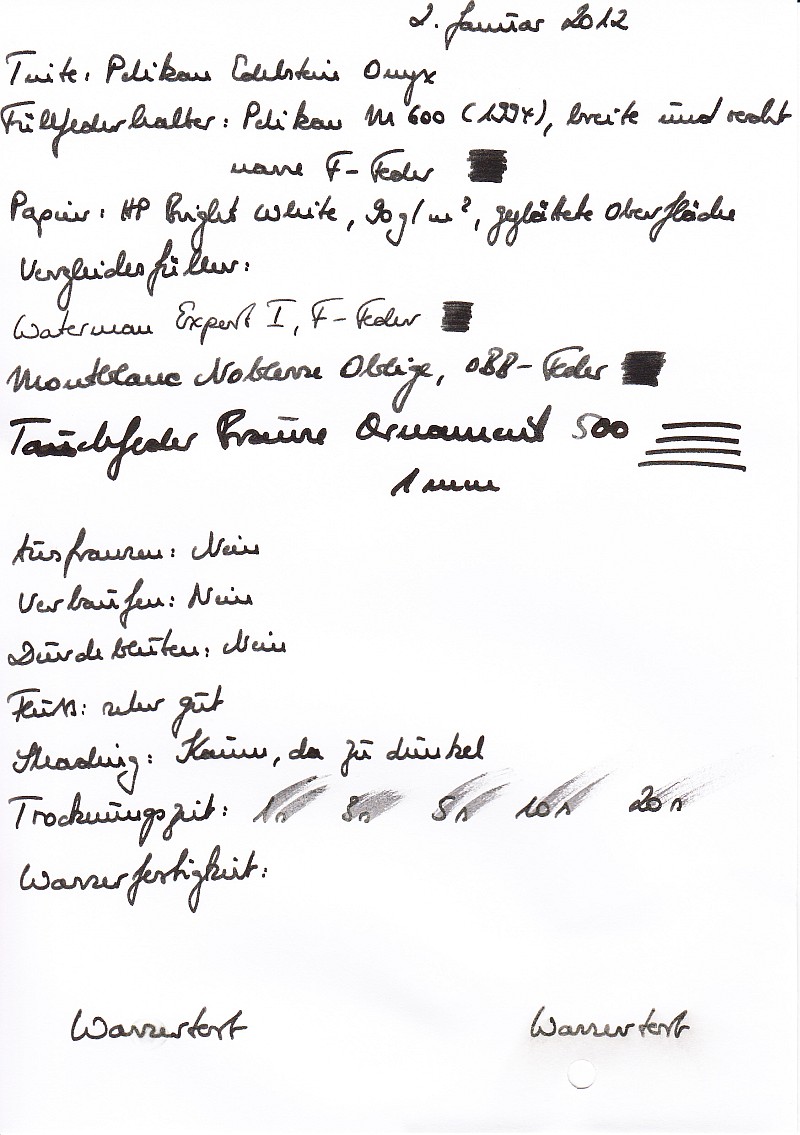 2. Januar 2012
Tinte: Pelikan Edelstein Onyx
Füllfederhalter: Pelikan M 600 (1997), breite und recht
nasse F-Feder
Papier: HP Bright White, 90g/m², geglättete Oberfläche
Vergleichsfüller:
Waterman Expert I, F-Feder
Montblanc Noblesse Oblige, OBB-Feder
Tauchfeder Brause Ornament 500
1 mm
Ausfransen: Nein
Verlaufen: Nein
Durchbluten: Nein
Fluss: sehr gut
Shading: Kaum, da zu dunkel
Trocknungszeit: 1s 3s 5s 10s 20s
Wasserfestigkeit:
Wassertest Wassertest